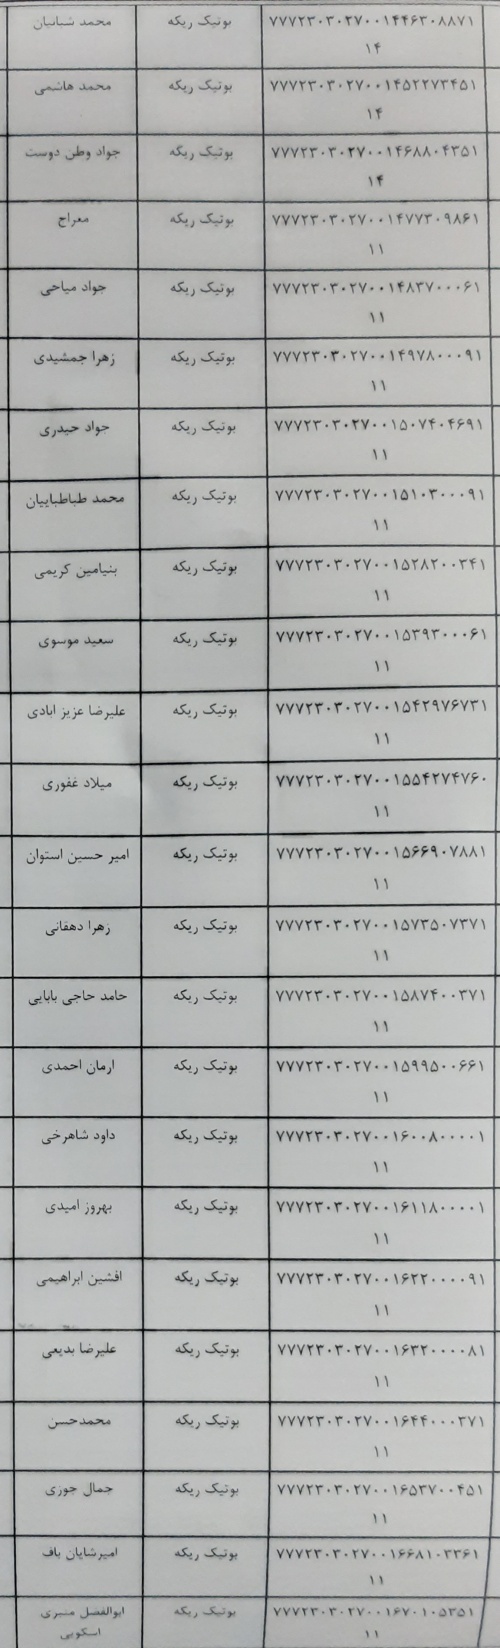 محمد شبانیان بوتیک ریکه ۷۷۷۲۳۰۳۰۲۷۰۰۱۴۴۶۳۰۸۸۷۱
۱۴
محمد هاشمی بوتیک ریکه ۷۷۷۲۳۰۳۰۲۷۰۰۱۴۵۲۲۷۳۴۵۱
۱۴
جواد وطن دوست بوتیک ریکه ۷۷۷۲۳۰۳۰۲۷۰۰۱۴۶۸۸۰۴۳۵۱
۱۴
معراج بوتیک ریکه ۷۷۷۲۳۰۳۰۲۷۰۰۱۴۷۷۳۰۹۸۶۱
۱۱
جواد میاحی بوتیک ریکه ۷۷۷۲۳۰۳۰۲۷۰۰۱۴۸۳۷۰۰۰۶۱
۱۱
زهرا جمشیدی بوتیک ریکه ۷۷۷۲۳۰۳۰۲۷۰۰۱۴۹۷۸۰۰۰۹۱
۱۱
جواد حیدری بوتیک ریکه ۷۷۷۲۳۰۳۰۲۷۰۰۱۵۰۷۴۰۴۶۹۱
۱۱
محمد طباطباییان بوتیک ریکه ۷۷۷۲۳۰۳۰۲۷۰۰۱۵۱۰۳۰۰۰۹۱
۱۱
بنیامین کریمی بوتیک ریکه ۷۷۷۲۳۰۳۰۲۷۰۰۱۵۲۸۲۰۰۳۴۱
۱۱
سعید موسوی بوتیک ریکه ۷۷۷۲۳۰۳۰۲۷۰۰۱۵۳۹۳۰۰۰۶۱
۱۱
علیرضا عزیز ابادی بوتیک ریکه ۷۷۷۲۳۰۳۰۲۷۰۰۱۵۴۲۹۷۶۷۳۱
۱۱
میلاد غفوری بوتیک ریکه ۷۷۷۲۳۰۳۰۲۷۰۰۱۵۵۴۲۷۴۷۶۰
۱۱
امیر حسین استوان بوتیک ریکه ۷۷۷۲۳۰۳۰۲۷۰۰۱۵۶۶۹۰۷۸۸۱
۱۱
زهرا دهقانی بوتیک ریکه ۷۷۷۲۳۰۳۰۲۷۰۰۱۵۷۳۵۰۷۳۷۱
۱۱
حامد حاجی بابایی بوتیک ریکه ۷۷۷۲۳۰۳۰۲۷۰۰۱۵۸۷۴۰۰۳۷۱
۱۱
ارمان احمدی بوتیک ریکه ۷۷۷۲۳۰۳۰۲۷۰۰۱۵۹۹۵۰۰۶۶۱
۱۱
داود شاهرخی بوتیک ریکه ۷۷۷۲۳۰۳۰۲۷۰۰۱۶۰۰۸۰۰۰۰۱
۱۱
بهروز امیدی بوتیک ریکه ۷۷۷۲۳۰۳۰۲۷۰۰۱۶۱۱۸۰۰۰۰۱
۱۱
افشین ابراهیمی بوتیک ریکه ۷۷۷۲۳۰۳۰۲۷۰۰۱۶۲۲۰۰۰۰۹۱
۱۱
علیرضا بدیعی بوتیک ریکه ۷۷۷۲۳۰۳۰۲۷۰۰۱۶۳۲۰۰۰۰۸۱
۱۱
محمدحسن بوتیک ریکه ۷۷۷۲۳۰۳۰۲۷۰۰۱۶۴۴۰۰۰۳۷۱
۱۱
جمال جوزی بوتیک ریکه ۷۷۷۲۳۰۳۰۲۷۰۰۱۶۵۳۷۰۰۴۵۱
۱۱
امیرشایان باف بوتیک ریکه ۷۷۷۲۳۰۳۰۲۷۰۰۱۶۶۸۱۰۳۳۶۱
۱۱
ابوالفضل منبری بوتیک ریکه ۷۷۷۲۳۰۳۰۲۷۰۰۱۶۷۰۱۰۵۳۵۱
اسکویی ۱۱